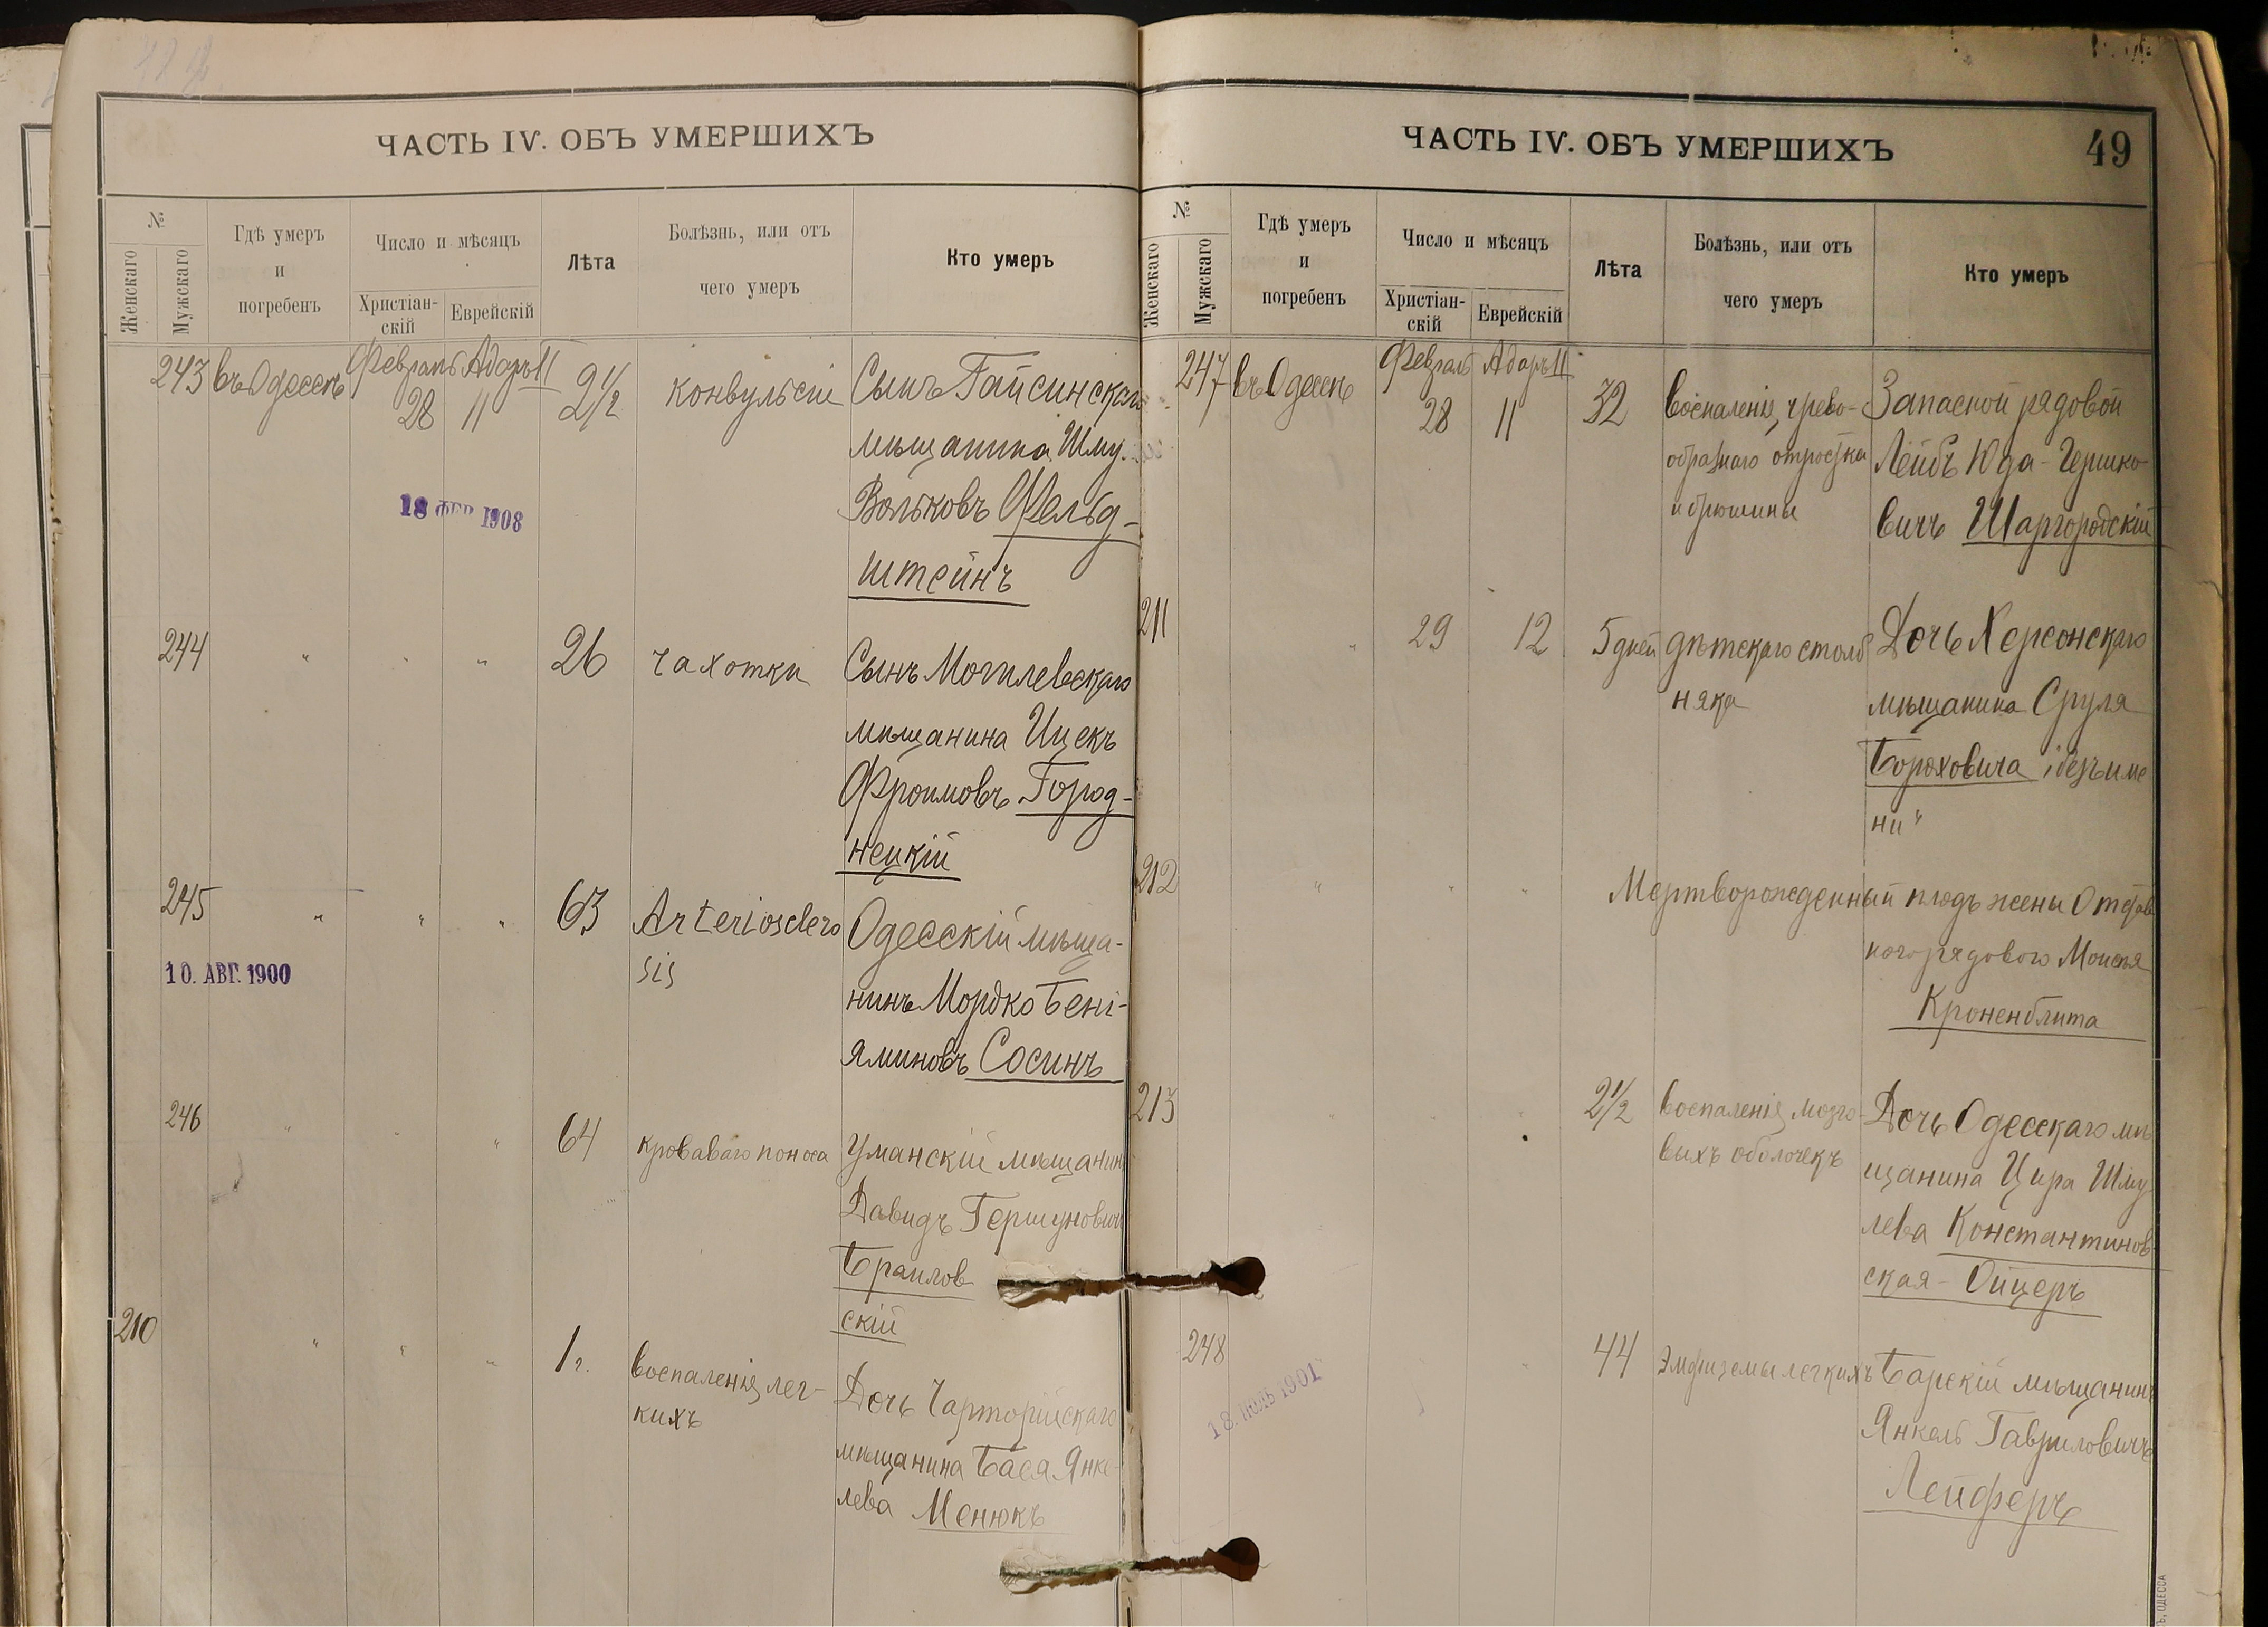 ЧАСТЬ IV. ОБЪ УМЕРШИХЪ
№
Женскаго
Мужскаго
Гдѣ умеръ
и
погребенъ
Число и мѣсяцъ
Христіан-
скій
Еврейскій
Лѣта
Болѣзнь, или отъ
чего умеръ
Кто умеръ
243 въ Одессѣ Февраль 28 Адаръ II 11 2 1/2 конвульсіи Сынъ Гайсинскаго
мѣщанина Шму.
Вольковъ Фельд-
штейнъ
18 ФЕВ 1908
244 " " " 26 чахотки Сынъ Могилевскаго
мѣщанина Ицекъ
Фроимовъ Город-
нецкій
245 " " " 63 Arteriosclero Одесскій мѣща-
sis
нинъ Мордко Бені-
яминовъ Сосинъ
10. АВГ. 1900
246 " " " 64 кроваваго поноса Уманскій мѣщанинъ
Давидъ Гершуновичъ
Браилов
скій
210 " " " 1 г. воспаленія лег-
кихъ
Дочь Чарторійскаго
мѣщанина Бася Янке-
лева Менюкъ
ЧАСТЬ IV. ОБЪ УМЕРШИХЪ
49
№
Женскаго
Мужскаго
Гдѣ умеръ
и
погребенъ
Число и мѣсяцъ
Христіан-
скій
Еврейскій
Лѣта
Болѣзнь, или отъ
чего умеръ
Кто умеръ
247 въ Одессѣ Февраль 28 Адаръ II 11 32 воспаленія черво-
образнаго отростка
и брюшины
Запасной рядовой
Лейбъ Юда-Гершко-
вичъ Шаргородскій
211 " 29 12 5 дней дѣтскаго столб
няка
Дочь Херсонскаго
мѣщанина Сруля
Бороховича "безъиме
ни"
212 " " " Мертворожденный плодъ жены Отстав
ного рядового Моисея
Кроненблита
213 " " " 2 1/2 воспаленія мозго-
выхъ оболочекъ
Дочь Одесскаго мѣ
щанина Цира Шму
лева Константинов-
ская - Ойцеръ
248 " " 44 Эмфиземы легкихъ Барскій мѣщанинъ
Янкель Гавриловичъ
Лейферъ
18. 1901
ОДЕССА